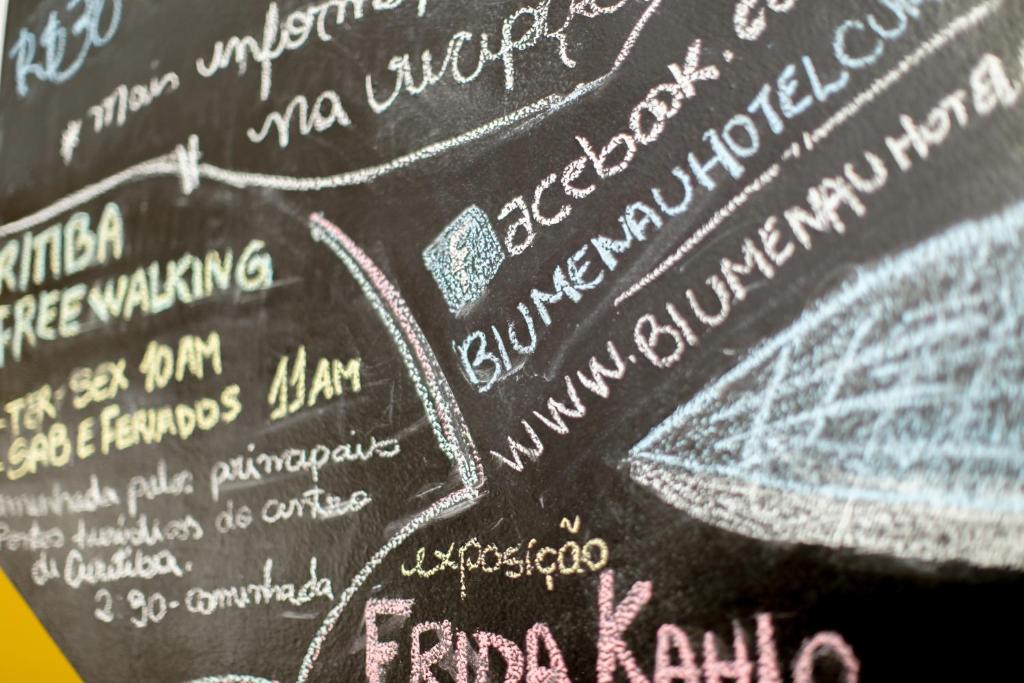 R$30
* mais inform
na recepç
RITIBA
FREE WALKING
-TER-SEX 10AM
-SAB E FERIADOS 11AM
minhada pelos principais
Pontos turísticos do centro
de Curitiba.
2:30-caminhada
facebook.co
BLUMENAUHOTELCUR
WWW.BLUMENAUHOTEL
exposição
FRIDA KAHLO